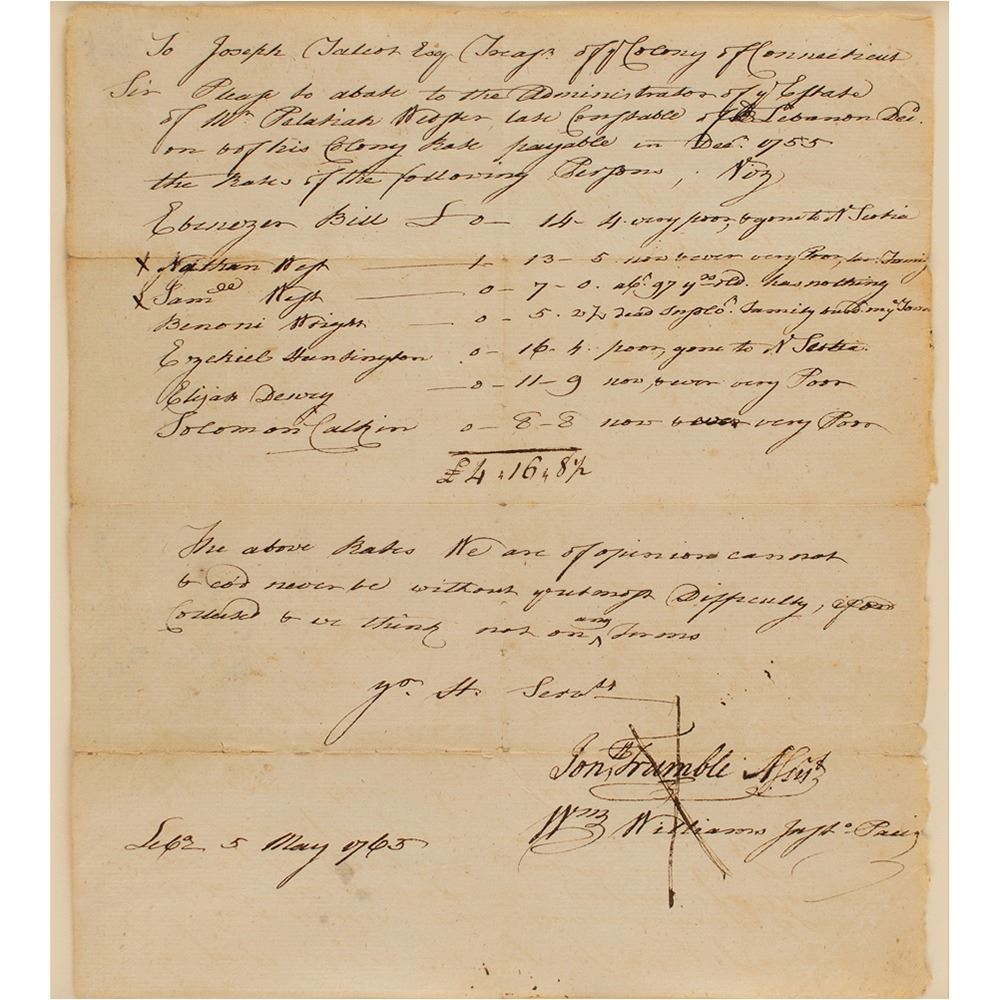 To Joseph Talcot Esq Treasr. of ye Colony of Connecticut
Sir Please to abate to the Administrator of ye Estate
of Mr. Pelatiah Webster, late Constable of Lebanon Decd.
on of his Colony Rate payable in Decr. 1755
the Rates of the following Persons, Viz
Ebenezer Bill £ 0 – 14 – 4 very poor, & gone to N Scotia
x Nathan West 1 – 13 – 5 now & ever very Poor,
x Samll West 0 – 7 – 0. abt. 97 yrs old. has nothing
Benoni Wright 0 – 5. 2½ dead Family
Ezekiel Huntington 0 – 16 – 4. poor, gone to N Scotia.
Elijah Dewey – 0 – 11 – 9 now & ever very Poor
Solomon Calkin 0 – 8 – 8 now & ever very Poor
£4 „ 16 „ 8½
The above Rates We are of opinion cannot
& cod never be without ye utmost Difficulty,
Collected & we think not on any Terms
yor. H. Servts
Jonth Trumble Assist
Wm Williams Just. Pacis
Leba 5 May 1765